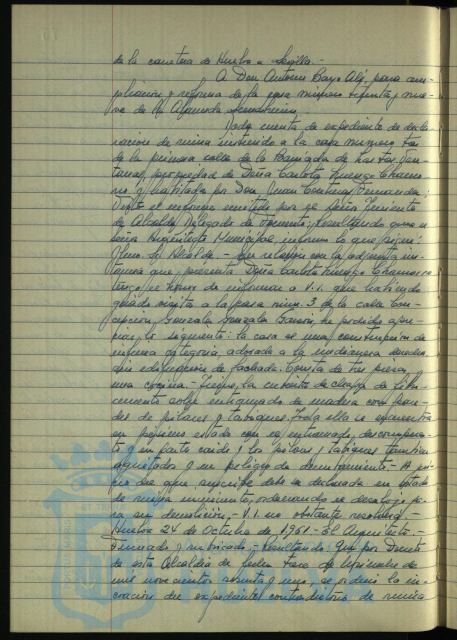 de la carretera de Huelva a Sevilla.-
A Don Antonio Bayo Alé, para am-
pliación y reforma de la casa número treinta y nue-
ve de la Alameda Sundheim.
Dada cuenta de expediente de decla-
ración de ruina instruido a la casa número tres
de la primera calle de la Barriada de
propiedad de Doña Carlota
y habitada por Don Juan
Visto el informe emitido por el señor Teniente
de Alcalde Delegado de Fomento; Resultando que el
señor Arquitecto Municipal, informa lo que sigue:
Ilmo. Sr. Alcalde.- En relación con la adjunta ins-
tancia que presenta Doña Carlota
tengo el honor de informar a V.I. que habiendo
girado visita a la casa núm. 3 de la calle Con-
cepción, he podido apre-
ciar lo siguiente: la casa es una construcción de
ínfima categoría, adosada a la medianera
edificación de fachada. Consta de tres piezas
una cocina.- la cubierta de chapa de fibro-
cemento sobre entramado de madera con pare-
des de pilares y tabiques. Toda ella se encuentra
en pésimo estado con el entramado descompues-
to y en parte caído y los pilares y tabiques también
agrietados y en peligro de derrumbamiento.- A jui-
cio del que suscribe debe ser declarada en estado
de ruina inminente ordenando el desalojo pa-
ra su demolición.- V.I. no obstante resolverá.-
Huelva 24 de Octubre de 1961.- El Arquitecto.-
Firmado y rubricado.- Resultando: Que por Decreto
de esta Alcaldía de fecha trece de Noviembre de
mil novecientos sesenta y uno, se ordenó la in-
coación del expediente contradictorio de ruina